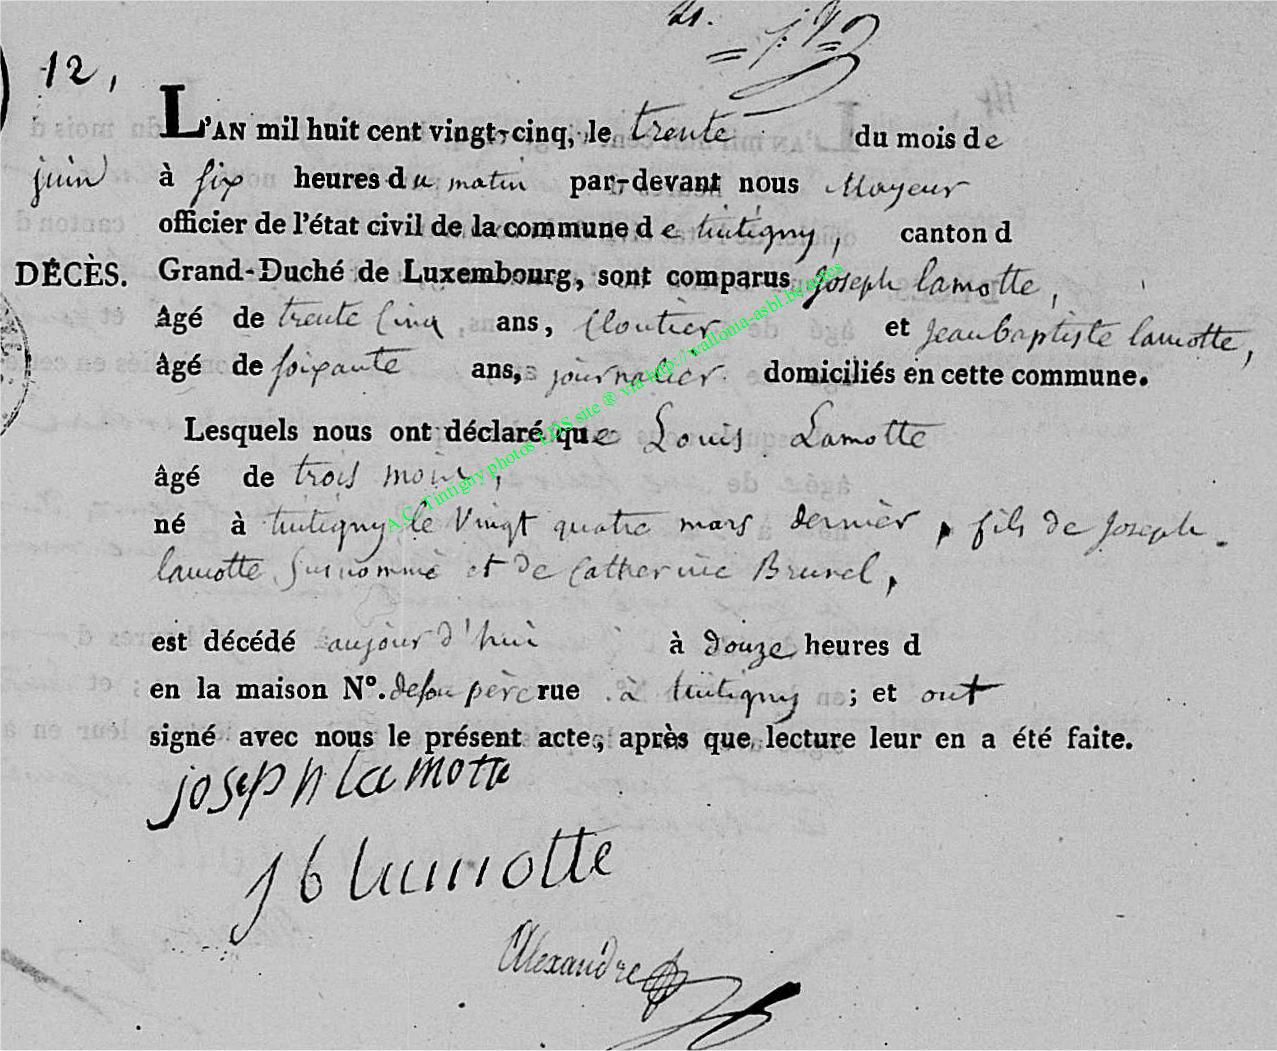 12,
L'AN mil huit cent vingt-cinq, le trente du mois de
juin à six heures du matin par-devant nous Mayeur
officier de l'état civil de la commune de tintigny, canton d
DÉCÈS. Grand-Duché de Luxembourg, sont comparus Joseph lamotte,
âgé de trente cinq ans, Cloutier et Jean baptiste lamotte,
âgé de soixante ans, journalier domiciliés en cette commune.
Lesquels nous ont déclaré que Louis Lamotte
âgé de trois mois,
né à tintigny le vingt quatre mars dernier, fils de Joseph
lamotte Surnommé et de Catherine Brunel,
est décédé aujour d'hui à douze heures d
en la maison N°. de son père rue à tintigny ; et ont
signé avec nous le présent acte, après que lecture leur en a été faite.
joseph lamotte
J b lamotte
Alexandre
A.C. Tintigny photos LDS site ® via http://wallonia-asbl.be